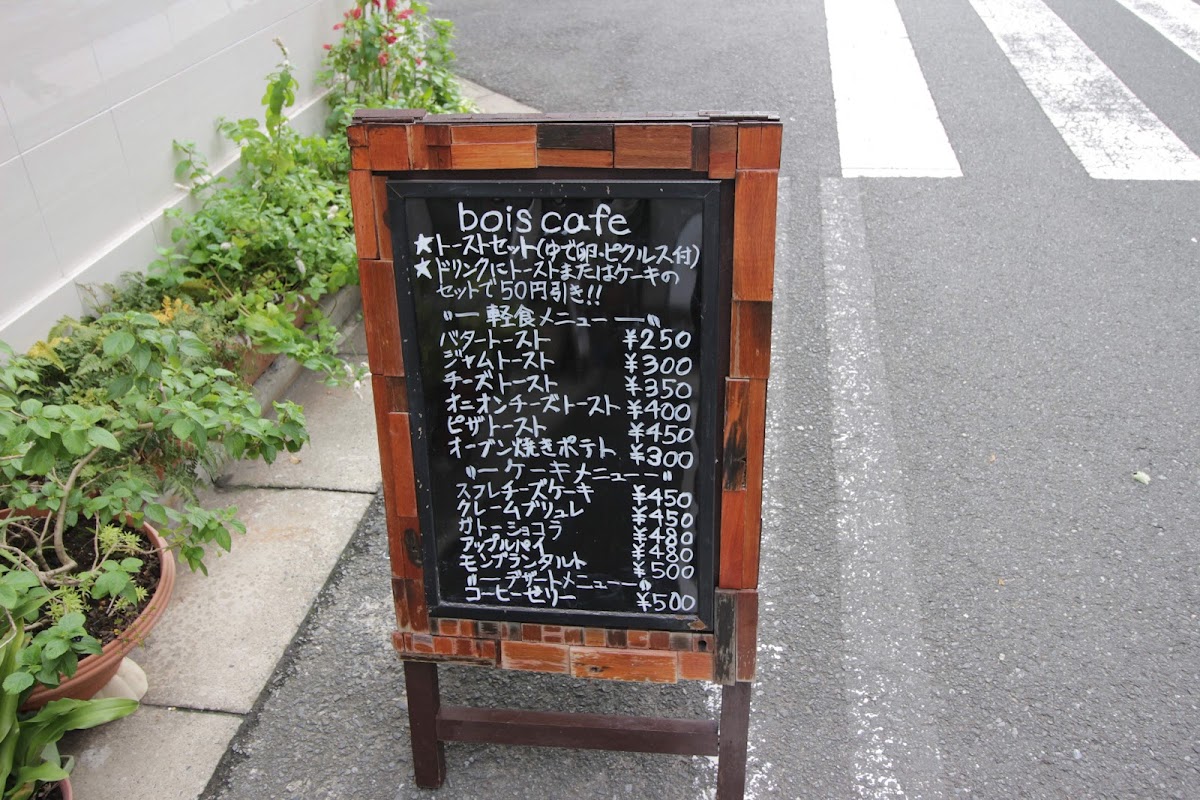 bois cafe
★トーストセット(ゆで卵・ピクルス付)
★ドリンクにトーストまたはケーキの
セットで50円引き!!
"— 軽食メニュー —"
バタートースト ¥250
ジャムトースト ¥300
チーズトースト ¥350
オニオンチーズトースト ¥400
ピザトースト ¥450
オーブン焼きポテト ¥300
"— ケーキメニュー —"
スフレチーズケーキ ¥450
クレームブリュレ ¥450
ガトーショコラ ¥480
アップルパイ ¥480
モンブランタルト ¥500
"— デザートメニュー —"
コーヒーゼリー ¥500